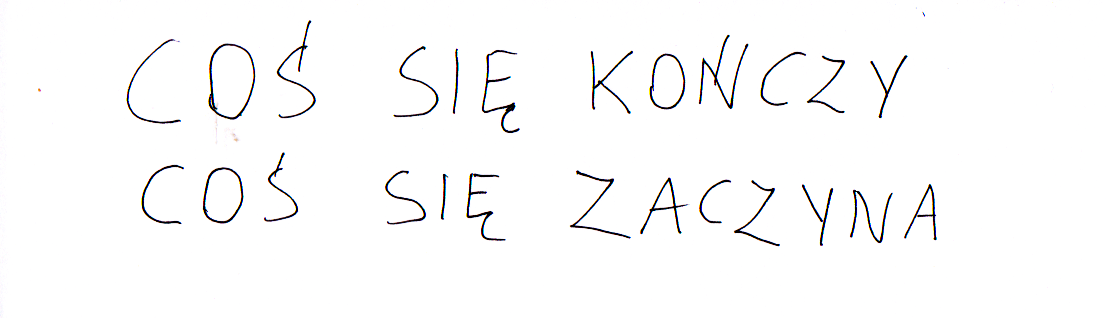 COŚ SIĘ KOŃCZY
COŚ SIĘ ZACZYNA